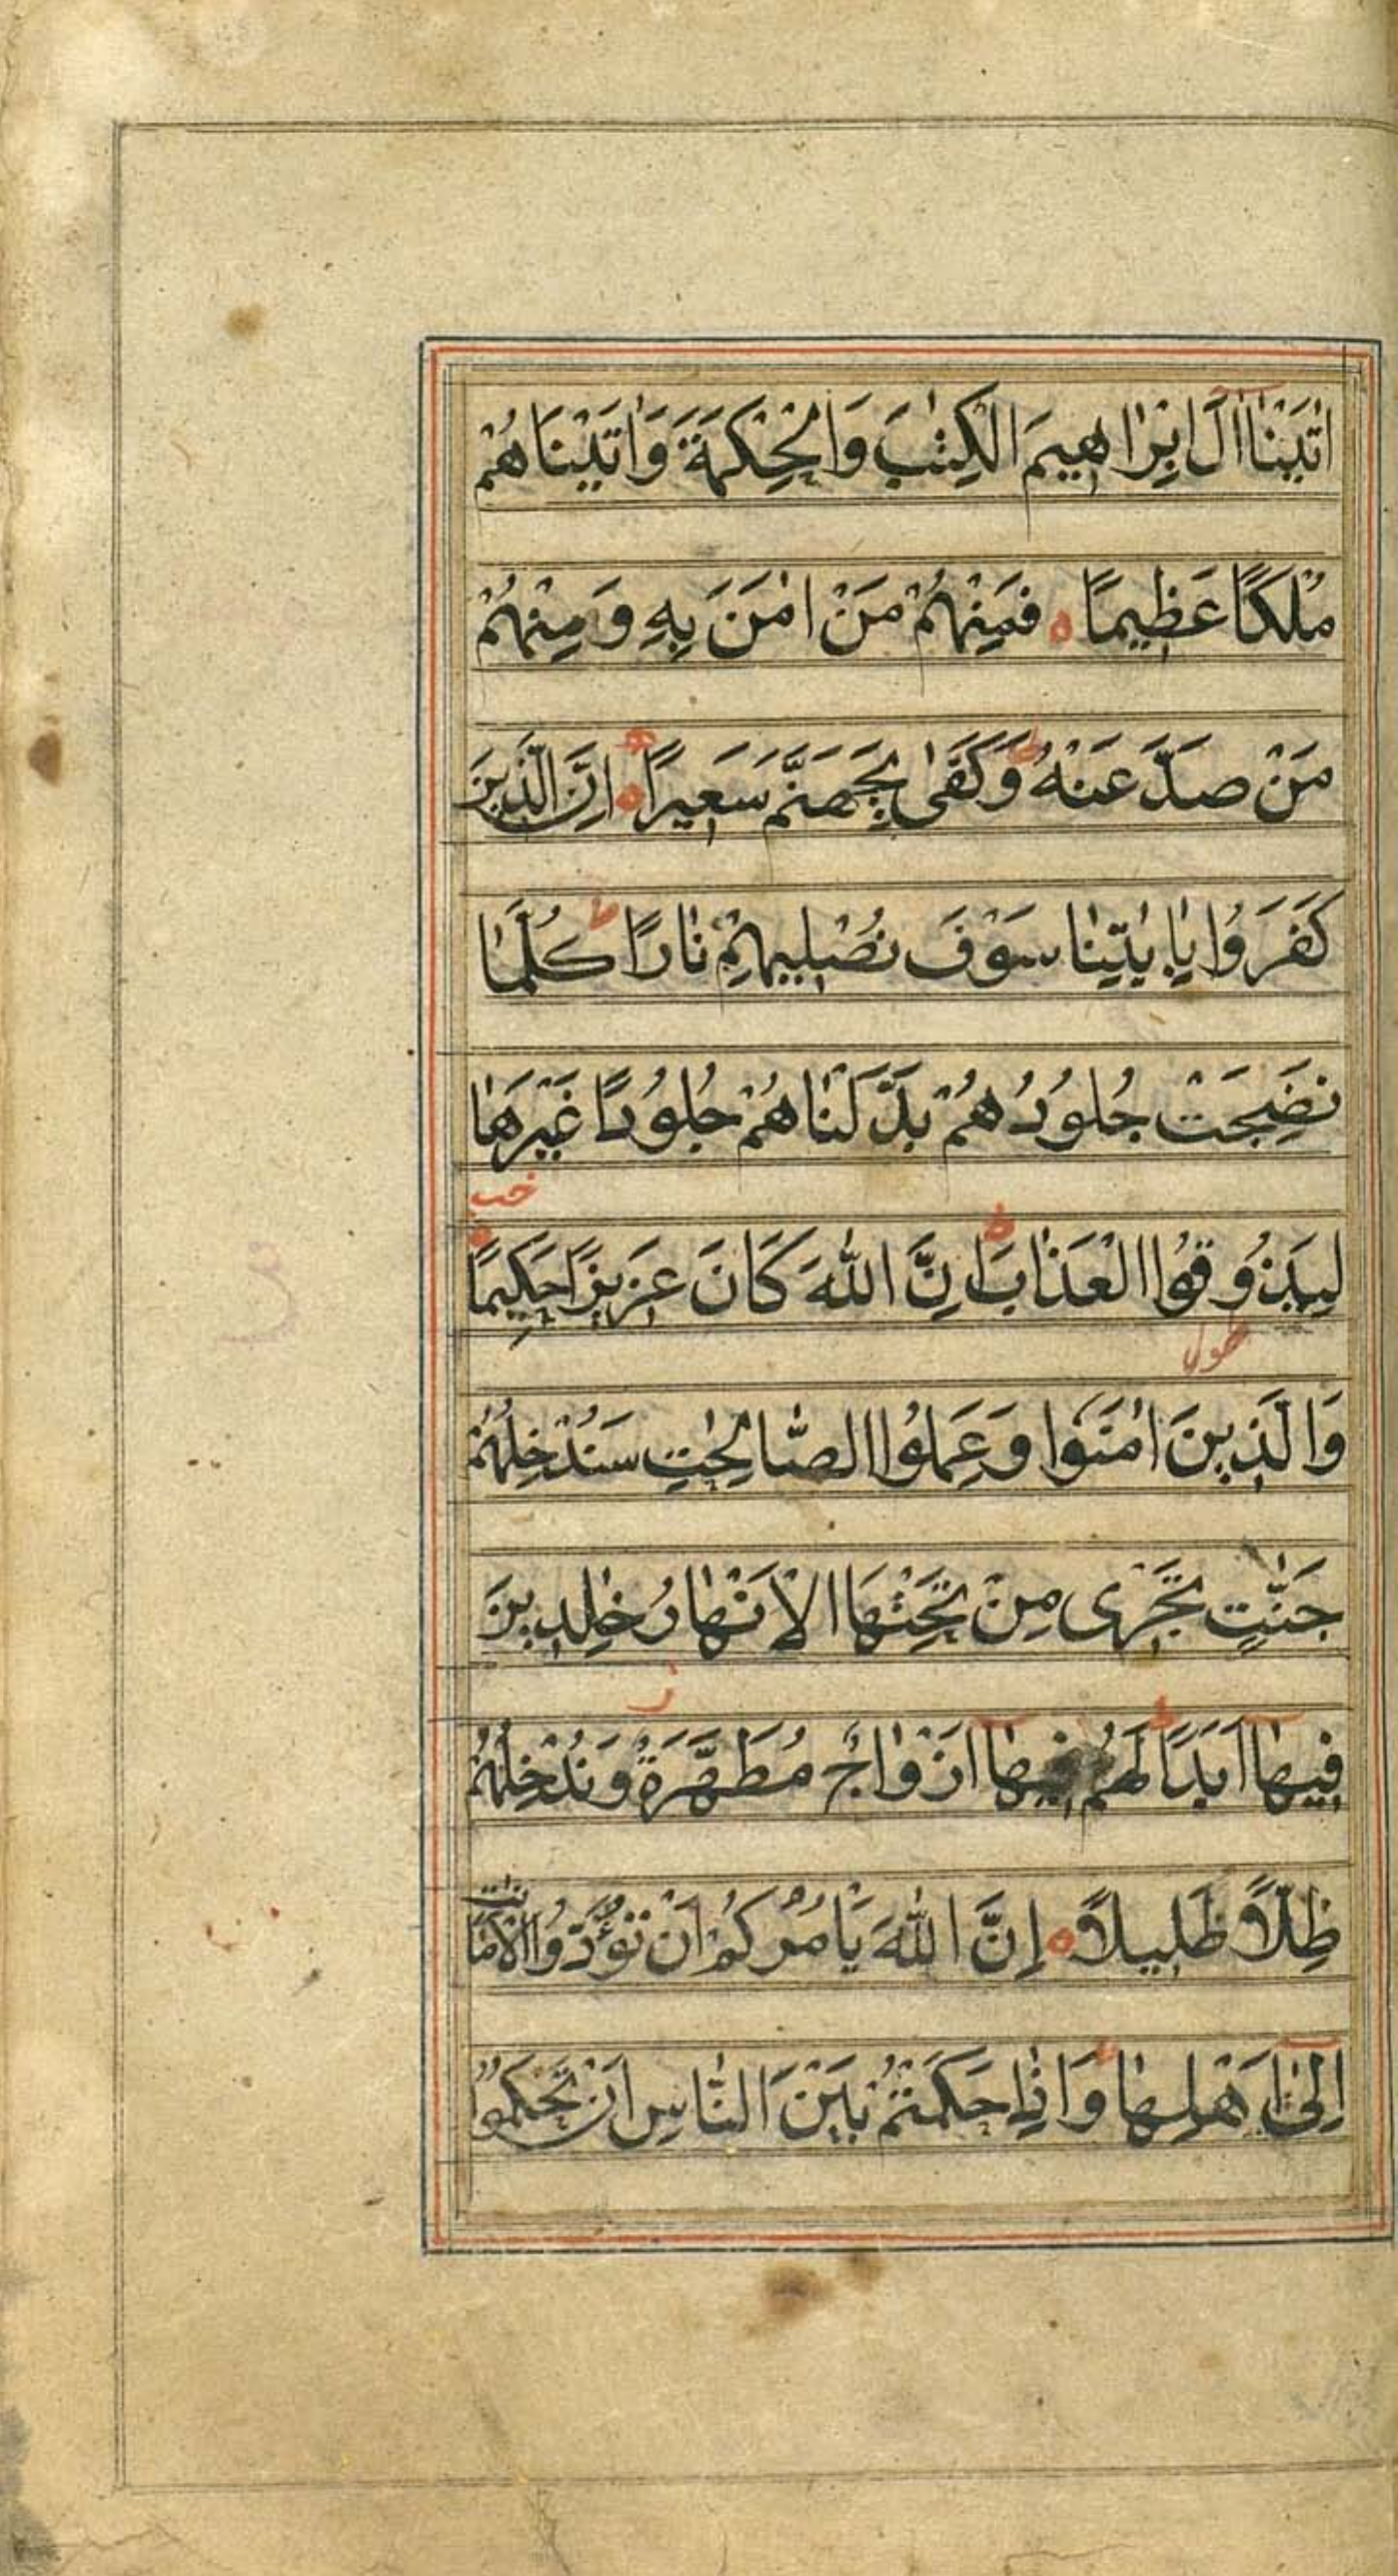 اٰتَيْنٰا اٰلَ اِبْرٰاهِيمَ الْكِتٰبَ وَالْحِكْمَةَ وَاٰتَيْنَاهُمْ
مُلْكًا عَظِيمًا ه فَمِنْهُمْ مَنْ اٰمَنَ بِهِ وَمِنْهُمْ
مَنْ صَدَّ عَنْهُ ط وَكَفٰى بِجَهَنَّمَ سَعِيرًا ه اِنَّ الَّذِينَ
كَفَرُوا بِاٰيٰتِنٰا سَوْفَ نُصْلِيهِمْ نٰارًا ط كُلَّمٰا
نَضِجَتْ جُلُودُهُمْ بَدَّلْنٰاهُمْ جُلُودًا غَيْرَهٰا
لِيَذُوقُوا الْعَذٰابَ ط اِنَّ اللّٰهَ كَانَ عَزِيزًا حَكِيمًا
وَالَّذِينَ اٰمَنُوا وَعَمِلُوا الصّٰالِحٰتِ سَنُدْخِلُهُمْ
جَنّٰتٍ تَجْرٖى مِنْ تَحْتِهَا الْاَنْهٰارُ خٰلِدِينَ
فِيهٰا اَبَدًا ط لَهُمْ فِيهٰا اَزْوٰاجٌ مُطَهَّرَةٌ ز وَنُدْخِلُهُمْ
ظِلًّا ظَلِيلًا ه اِنَّ اللّٰهَ يَاْمُرُكُمْ اَنْ تُؤَدُّوا الْاَمٰانٰاتِ
اِلىٰٓ اَهْلِهٰا وَاِذٰا حَكَمْتُمْ بَيْنَ النّٰاسِ اَنْ تَحْكُمُوا